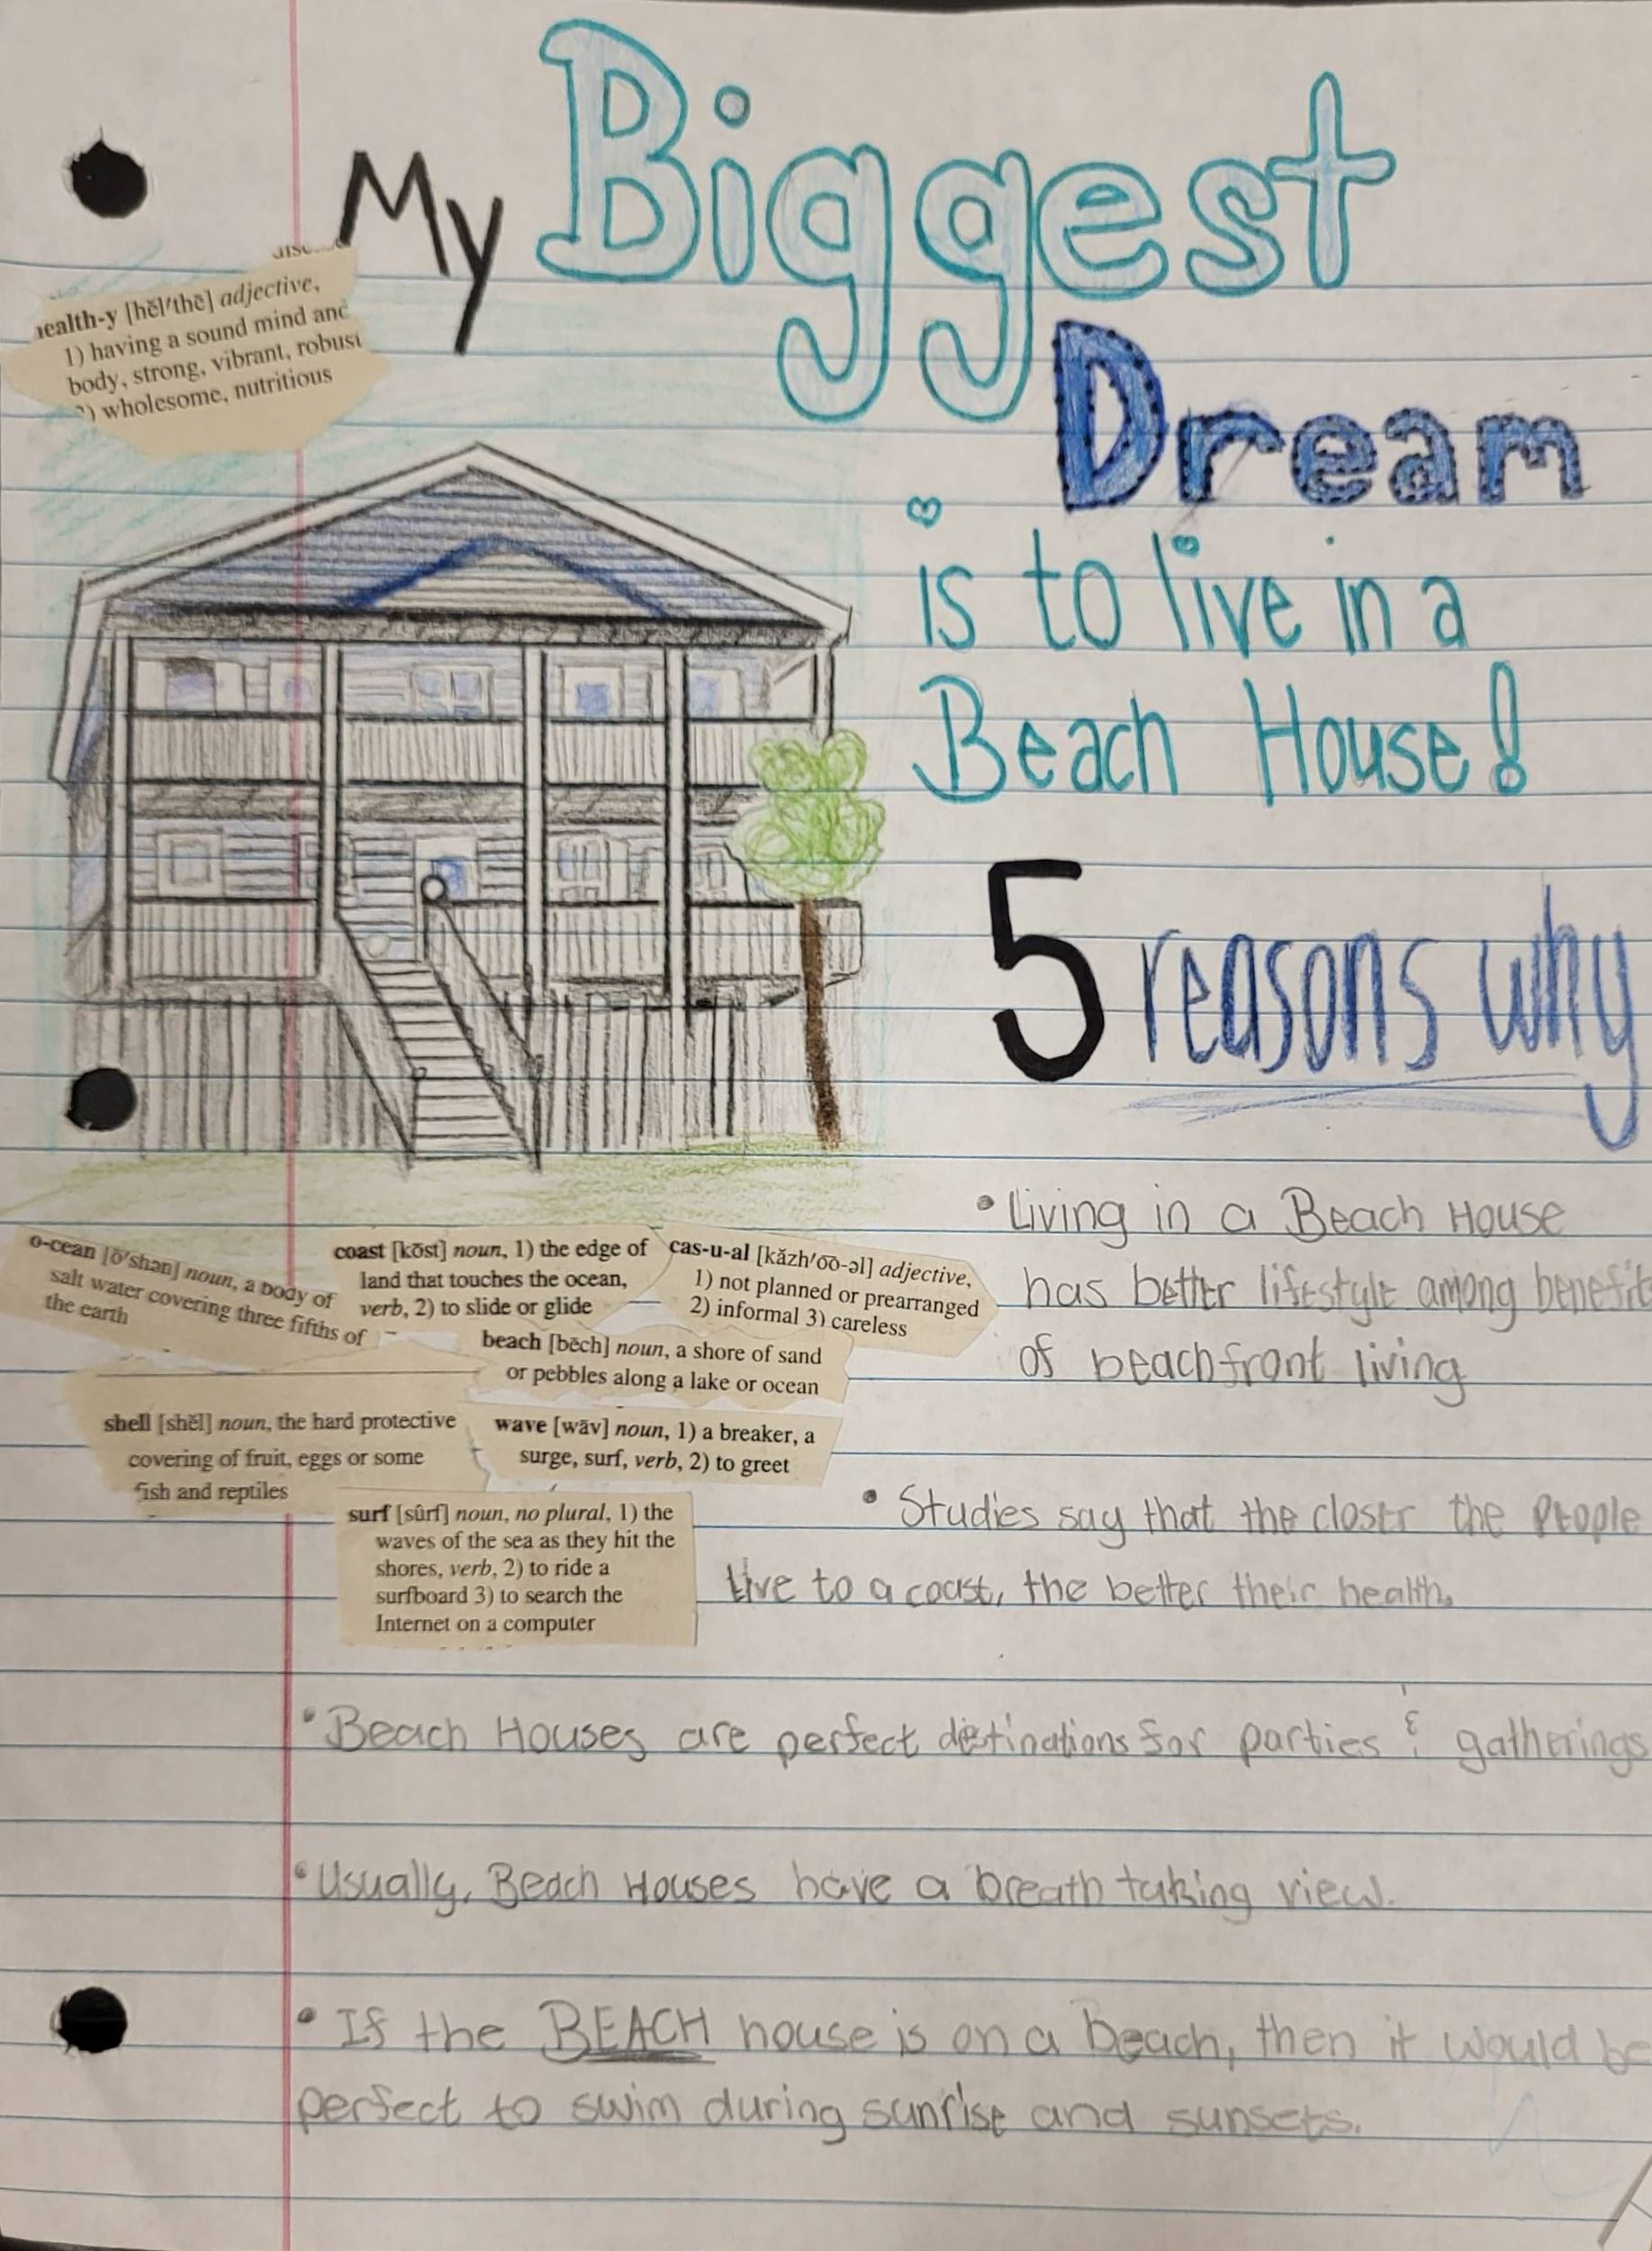 My Biggest
Dream
is to live in a
Beach House!
5 reasons why
health-y [hĕl′thē] adjective,
1) having a sound mind and
body, strong, vibrant, robust
2) wholesome, nutritious
o-cean [ō′shən] noun, a body of
salt water covering three fifths of
the earth
coast [kōst] noun, 1) the edge of
land that touches the ocean,
verb, 2) to slide or glide
cas-u-al [kăzh′o͞o-əl] adjective,
1) not planned or prearranged
2) informal 3) careless
beach [bēch] noun, a shore of sand
or pebbles along a lake or ocean
shell [shĕl] noun, the hard protective
covering of fruit, eggs or some
fish and reptiles
wave [wāv] noun, 1) a breaker, a
surge, surf, verb, 2) to greet
surf [sûrf] noun, no plural, 1) the
waves of the sea as they hit the
shores, verb, 2) to ride a
surfboard 3) to search the
Internet on a computer
• Living in a Beach House
has better lifestyle among benefits
of beachfront living
• Studies say that the closer the People
live to a coast, the better their health.
• Beach Houses are perfect destinations for parties & gatherings
• Usually, Beach Houses have a breath taking view.
• If the BEACH house is on a beach, then it would be
perfect to swim during sunrise and sunsets.